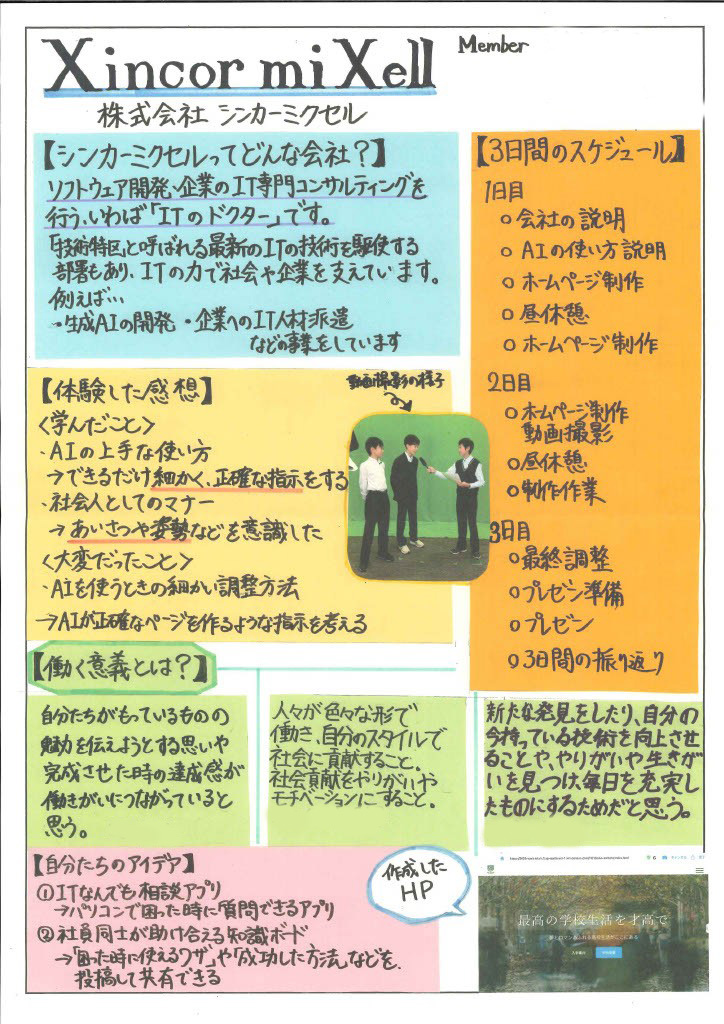 Xincor miXell
Member
株式会社 シンカーミクセル
【シンカーミクセルってどんな会社？】
ソフトウェア開発、企業のIT専門コンサルティングを
行う、いわば「ITのドクター」です。
「技術特区」と呼ばれる最新のITの技術を駆使する
部署もあり、ITの力で社会や企業を支えています。
例えば…
・生成AIの開発 ・企業へのIT人材派遣
などの事業をしています
【3日間のスケジュール】
1日目
○会社の説明
○AIの使い方説明
○ホームページ制作
○昼休憩
○ホームページ制作
2日目
○ホームページ制作
動画撮影
○昼休憩
○制作作業
3日目
○最終調整
○プレゼン準備
○プレゼン
○3日間の振り返り
【体験した感想】
動画撮影の様子
〈学んだこと〉
・AIの上手な使い方
→できるだけ細かく、正確な指示をする
・社会人としてのマナー
→あいさつや姿勢などを意識した
〈大変だったこと〉
・AIを使うときの細かい調整方法
→AIが正確なページを作るような指示を考える
【働く意義とは？】
自分たちがもっているものの
魅力を伝えようとする思いや
完成させた時の達成感が
働きがいにつながっていると
思う。
人々が色々な形で
働き、自分のスタイルで
社会に貢献すること。
社会貢献をやりがいや
モチベーションにすること。
新たな発見をしたり、自分の
今持っている技術を向上させ
ることや、やりがいや生きが
いを見つけ、毎日を充実し
たものにするためだと思う。
【自分たちのアイデア】
①ITなんでも相談アプリ
→パソコンで困った時に質問できるアプリ
②社員同士が助け合える知識ボード
→「困った時に使えるワザ」や「成功した方法」などを、
投稿して共有できる
作成した
HP
最高の学校生活を才高で